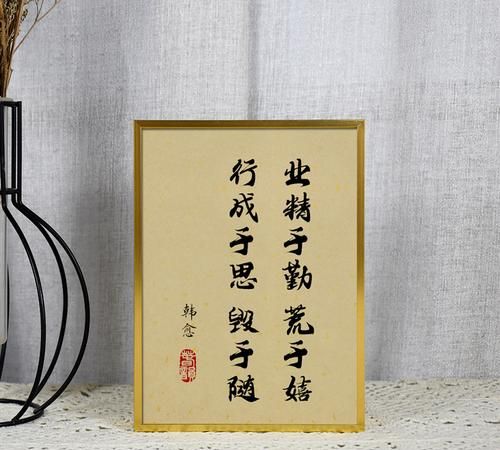 业精于勤 荒于嬉
行成于思 毁于随
韩愈